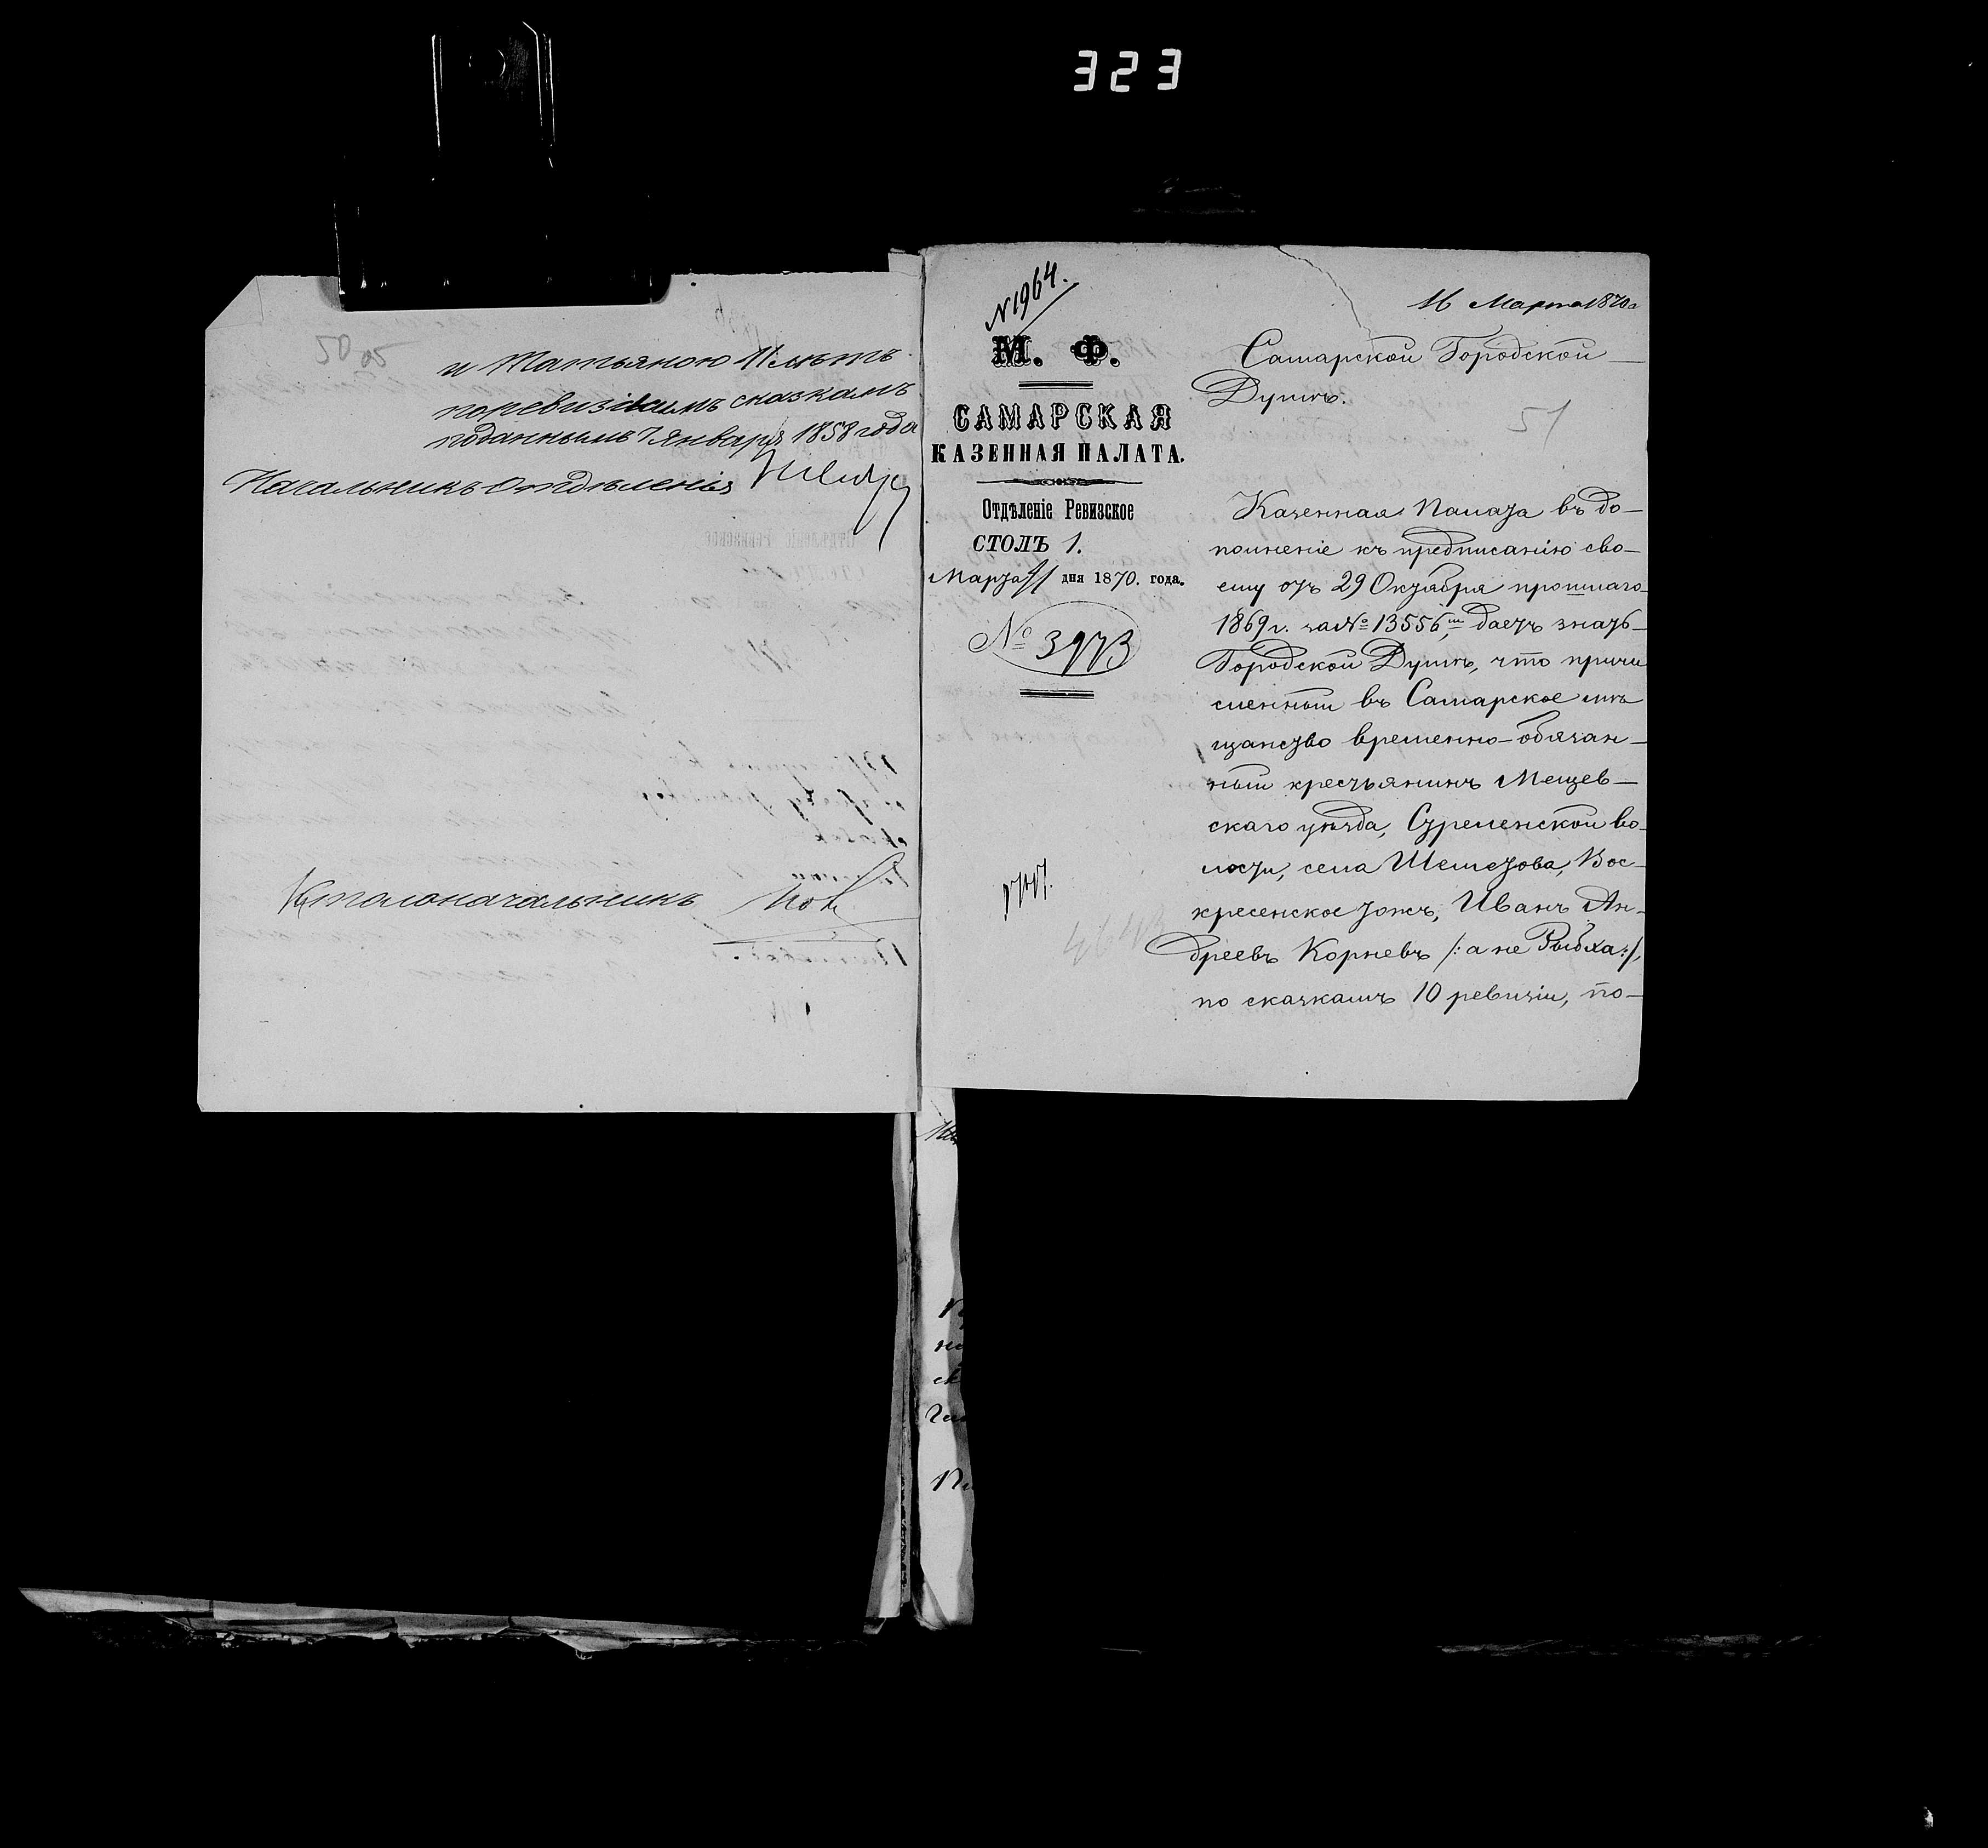 323
50 об
и Татьяною 11 лѣтъ
поревизскимъ сказкамъ
поданнымъ 7 Января 1858 года
Начальникъ Отдѣленія
Столоначальникъ
N 1964.
М. Ф.
САМАРСКАЯ
КАЗЕННАЯ ПАЛАТА.
Отдѣленіе Ревизское
СТОЛЪ 1.
Марта 11 дня 1870. года.
№ 3973
16 Марта 1870 г
Самарской Городской
Думѣ.
51
Казенная Палата въ до-
полненіе къ предписанію сво-
ему отъ 29 Октября прошлаго
1869 г. за № 13556, даетъ знать
Городской Думѣ, что причи
сленный въ Самарское мѣ
щанство временно-обязан-
ный крестьянинъ Мещев-
скаго уѣзда, Стреленской во-
лости, села Шеметова, Вос-
кресенское тожъ, Иванъ Ан-
дреевъ Корневъ /: а не Рыбха :/,
по сказкамъ 10 ревизіи, по-